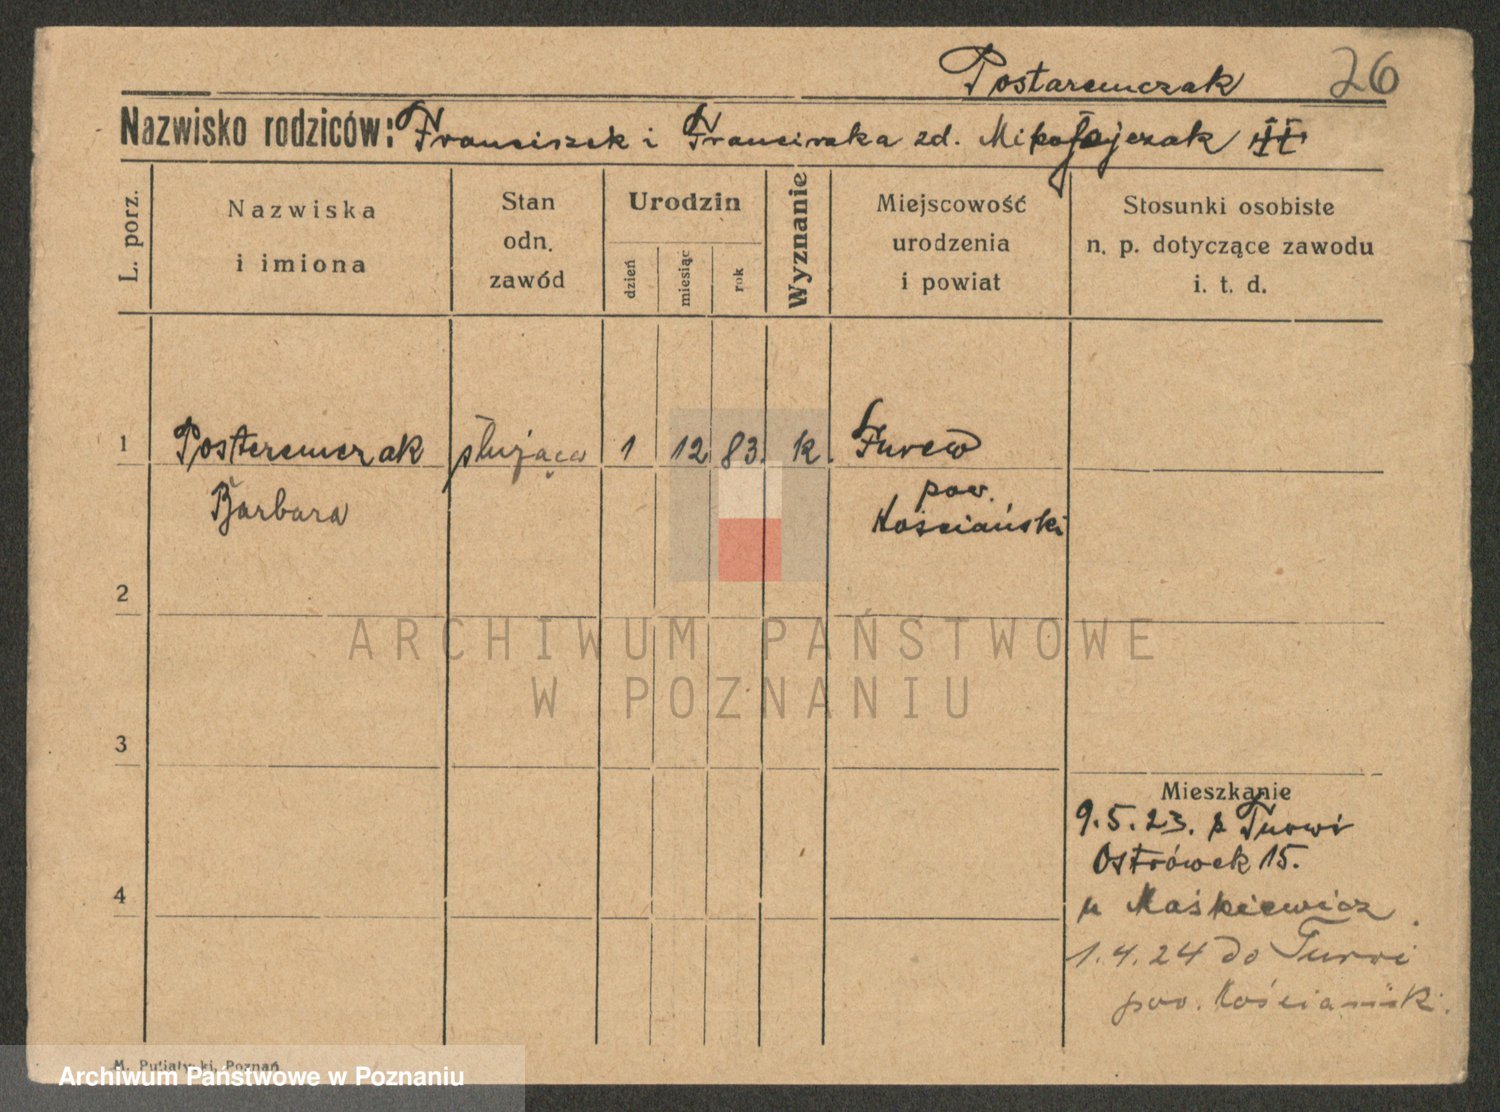 Postaremczak 26
Nazwisko rodziców: Franciszek i Franciszka zd. Mikołajczak
L. porz.
Nazwiska
i imiona
Stan
odn.
zawód
Urodzin
dzień
miesiąc
rok
Wyznanie
Miejscowość
urodzenia
i powiat
Stosunki osobiste
n. p. dotyczące zawodu
i. t. d.
1 Posteremczak służąca 1 12 83. k. Turew
Barbara
pow.
Kościański
2
3
4
Mieszkanie
9.5.23. z Turwi
Ostrówek 15.
u Maśkiewicz
1.4.24 do Turwi
pow. Kościańsk.
M. Putiatycki, Poznań
ARCHIWUM PAŃSTWOWE
W POZNANIU
Archiwum Państwowe w Poznaniu